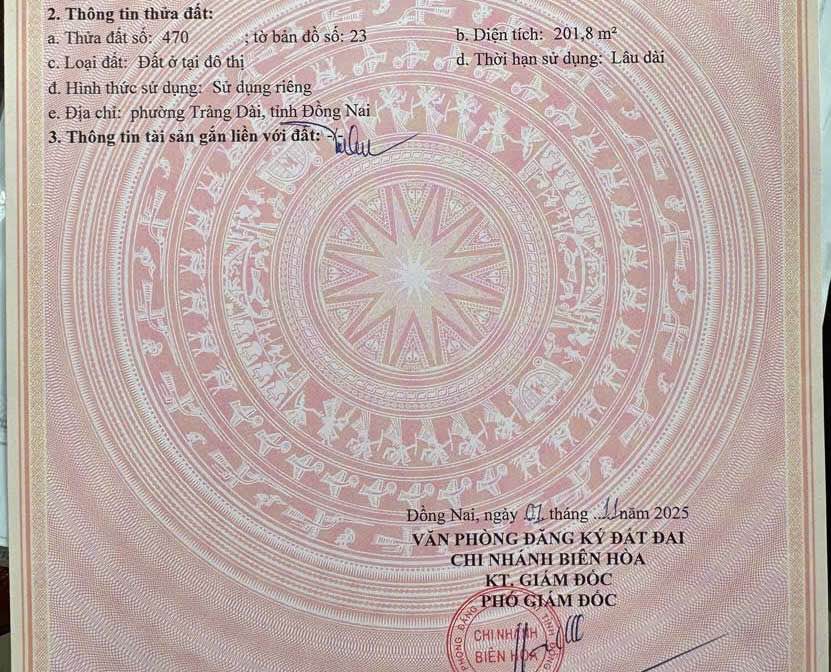 2. Thông tin thửa đất:
a. Thửa đất số: 470 ; tờ bản đồ số: 23 b. Diện tích: 201,8 m²
c. Loại đất: Đất ở tại đô thị d. Thời hạn sử dụng: Lâu dài
đ. Hình thức sử dụng: Sử dụng riêng
e. Địa chỉ: phường Trảng Dài, tỉnh Đồng Nai
3. Thông tin tài sản gắn liền với đất:
Đồng Nai, ngày 07 tháng 11 năm 2025
VĂN PHÒNG ĐĂNG KÝ ĐẤT ĐAI
CHI NHÁNH BIÊN HÒA
KT. GIÁM ĐỐC
PHÓ GIÁM ĐỐC
CHI NHÁNH
BIÊN HÒA